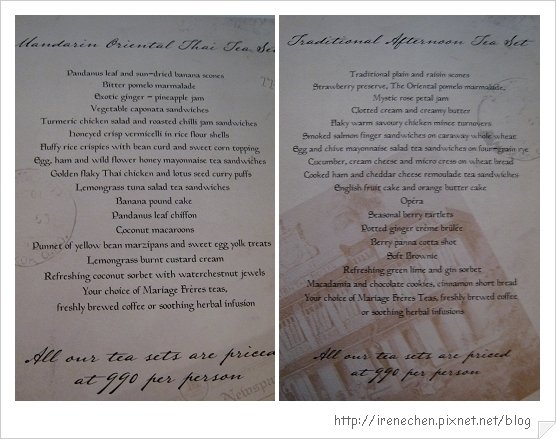 Mandarin Oriental Thai Tea Set
Pandanus leaf and sun-dried banana scones
Bitter pomelo marmalade
Exotic ginger - pineapple jam
Vegetable caponata sandwiches
Turmeric chicken salad and roasted chilli jam sandwiches
Honeyed crisp vermicelli in rice flour shells
Fluffy rice crispies with bean curd and sweet corn topping
Egg, ham and wild flower honey mayonnaise tea sandwiches
Golden flaky Thai chicken and lotus seed curry puffs
Lemongrass tuna salad tea sandwiches
Banana pound cake
Pandanus leaf chiffon
Coconut macaroons
Punnet of yellow bean marzipans and sweet egg yolk treats
Lemongrass burnt custard cream
Refreshing coconut sorbet with waterchestnut jewels
Your choice of Mariage Frères teas,
freshly brewed coffee or soothing herbal infusion
All our tea sets are priced
at 990 per person
Traditional Afternoon Tea Set
Traditional plain and raisin scones
Strawberry preserve, The Oriental pomelo marmalade,
Mystic rose petal jam
Clotted cream and creamy butter
Flaky warm savoury chicken mince turnovers
Smoked salmon finger sandwiches on caraway whole wheat
Egg and chive mayonnaise salad tea sandwiches on four-grain rye
Cucumber, cream cheese and micro cress on wheat bread
Cooked ham and cheddar cheese remoulade tea sandwiches
English fruit cake and orange butter cake
Opéra
Seasonal berry tartlets
Potted ginger crème brûlée
Berry panna cotta shot
Soft Brownie
Refreshing green lime and gin sorbet
Macadamia and chocolate cookies, cinnamon short bread
Your choice of Mariage Frères Teas, freshly brewed coffee
or soothing herbal infusions
All our tea sets are priced
at 990 per person
http://irenechen.pixnet.net/blog